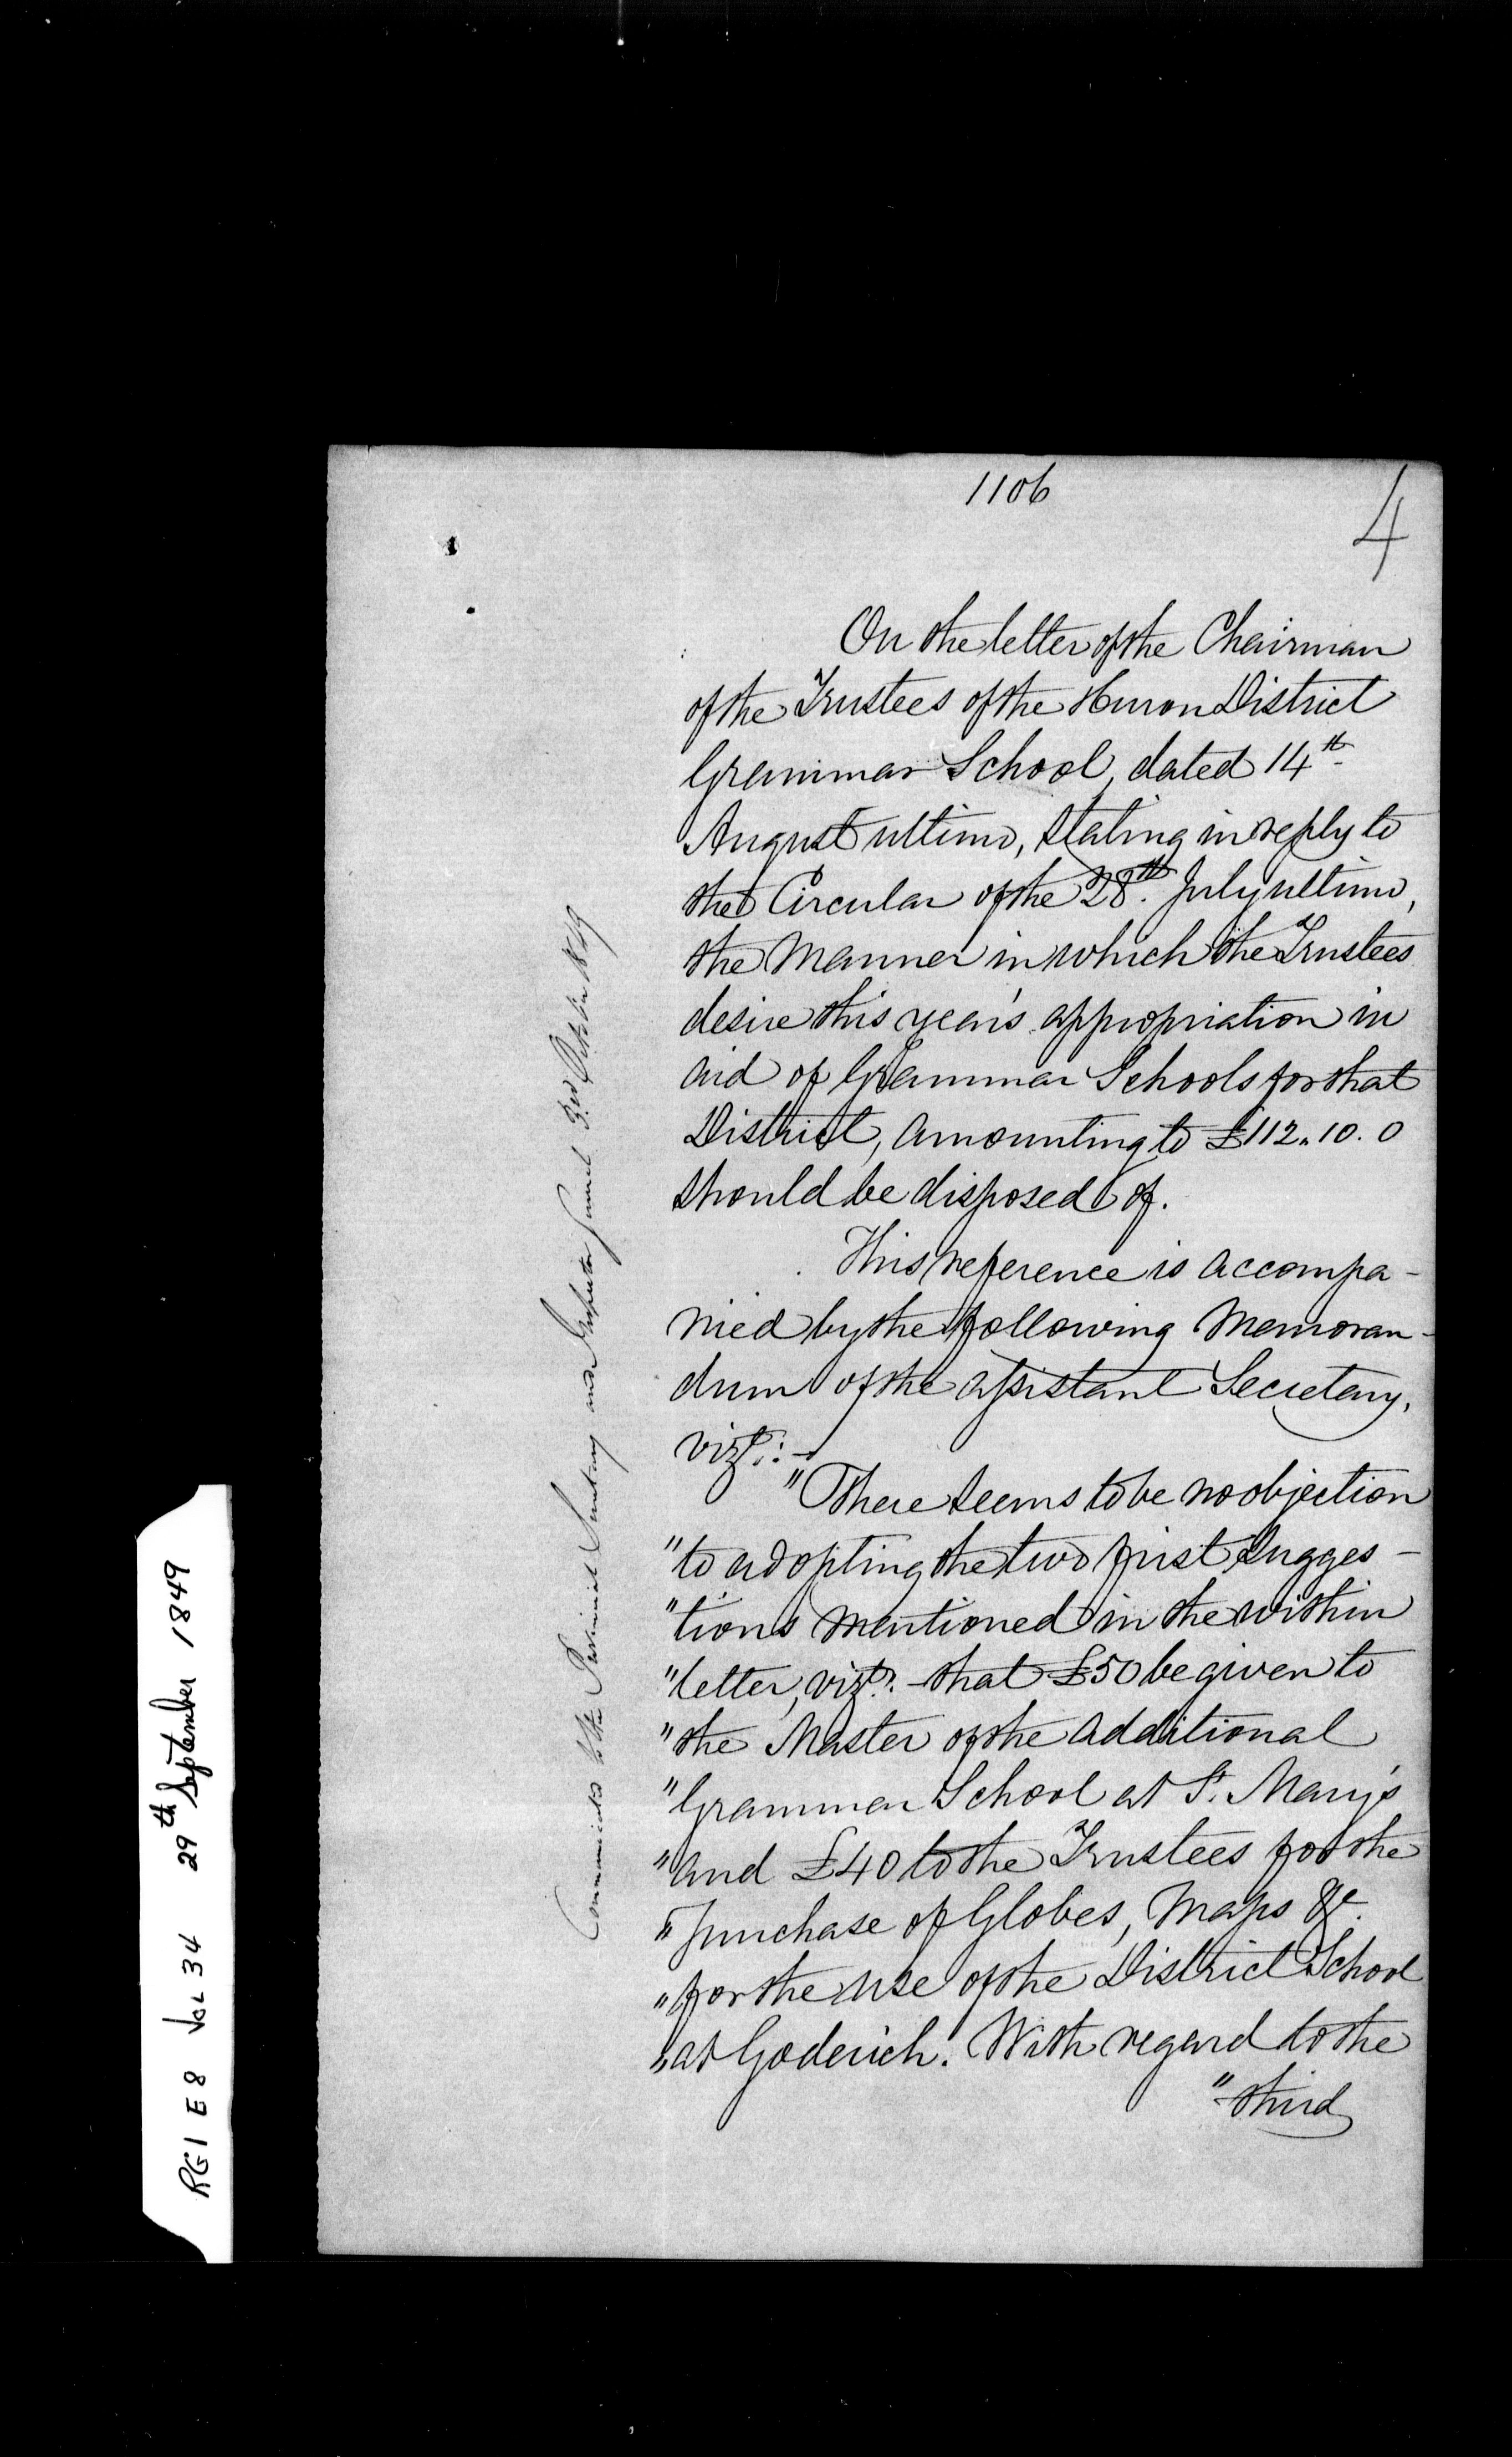 1106
4
On the letter of the Chairman
of the Trustees of the Huron District
Grammar School, dated 14th
August ultimo, stating in reply to
the Circular of the 28th. July ultimo,
the manner in which the Trustees
desire this year's appropriation in
aid of Grammar Schools for that
District, amounting to £112.. 10. 0
should be disposed of.
This reference is accompa-
nied by the following Memoran-
dum of the Assistant Secretary,
vizt:-
"There seems to be no objection
"to adopting the two first sugges-
"tions mentioned in the within
"letter, vizt. - that £50 be given to
"the Master of the additional
"Grammar School at St. Mary's
"and £40 to the Trustees for the
"purchase of Globes, Maps &c.
"for the use of the District School
"at Goderich. With regard to the
"third
Communicated to the Provincial Secretary and Inspector General 3rd October 1849
RG1 E8 Vol 34 29th September 1849